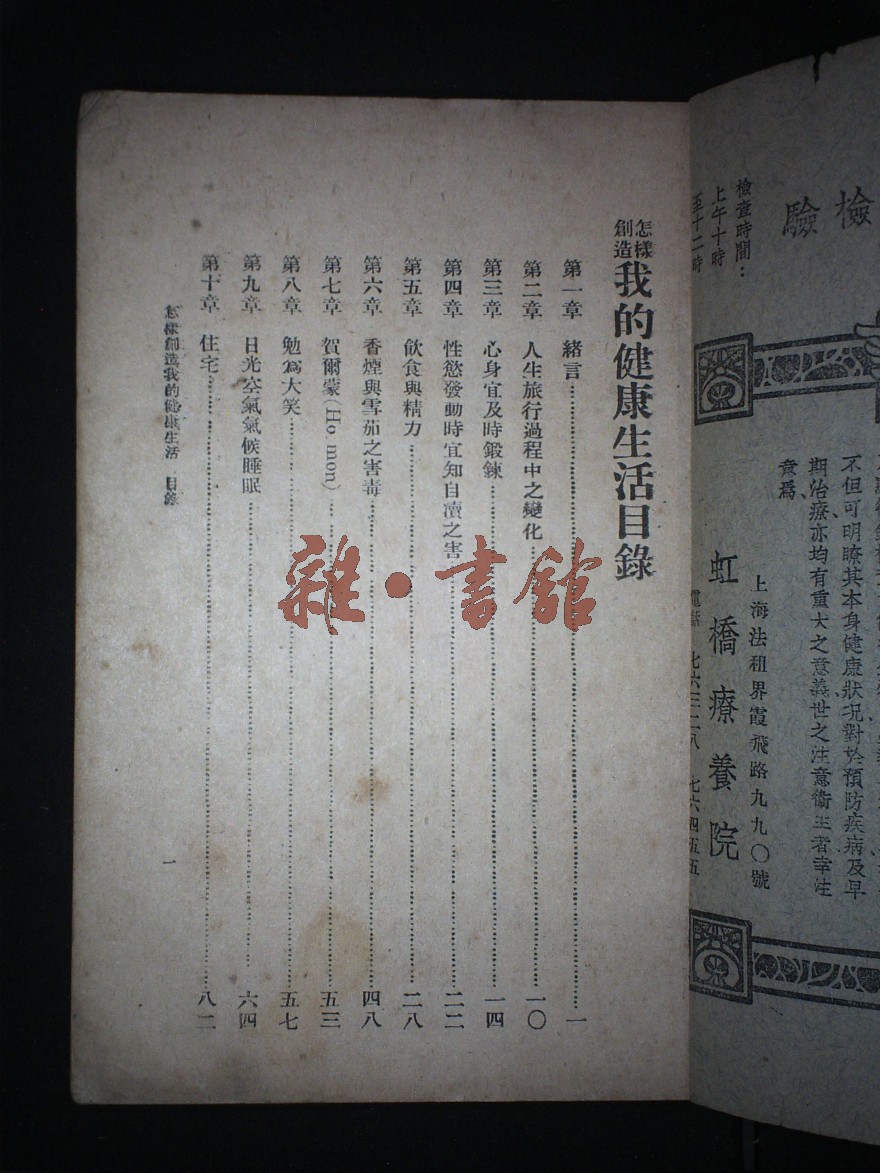 檢驗
檢查時間：
上午十時
至十二時
不但可明瞭其本身健康狀況對於預防疾病及早
期治療亦均有重大之意義世之注意衞生者幸注
意焉
上海法租界霞飛路九九〇號
虹橋療養院
電話 七六三二八 七六四五五
怎樣創造我的健康生活目錄
第一章 緒言 一
第二章 人生旅行過程中之變化 一〇
第三章 心身宜及時鍛鍊 一四
第四章 性慾發動時宜知自瀆之害 二二
第五章 飲食與精力 二八
第六章 香煙與雪茄之害毒 四八
第七章 賀爾蒙(Ho mon) 五三
第八章 勉爲大笑 五七
第九章 日光空氣氣候睡眠 六四
第十章 住宅 八二
怎樣創造我的健康生活 目錄
一
雜·書館